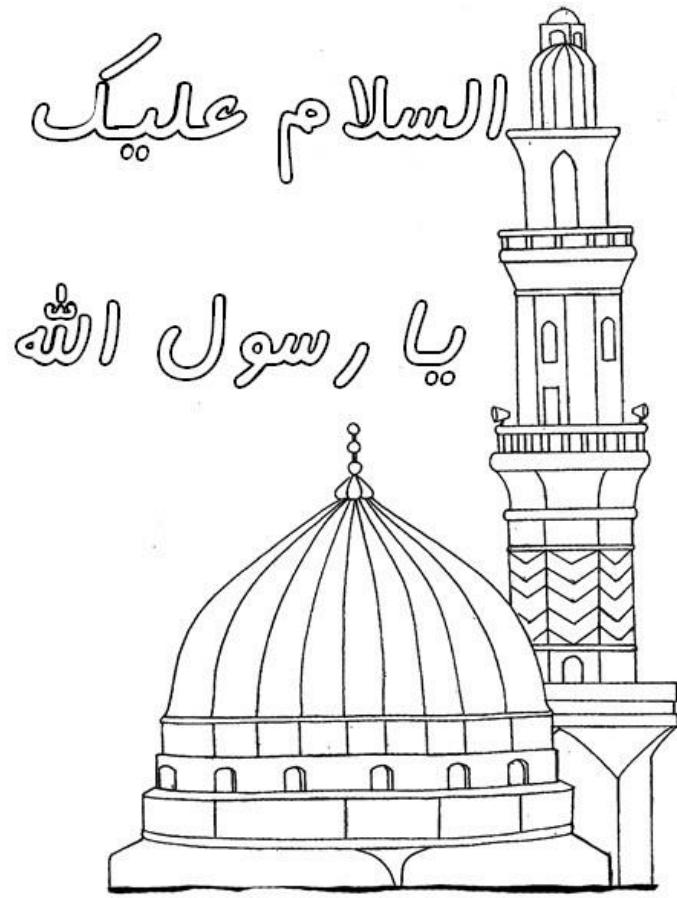 السلام علیک
یا رسول الله